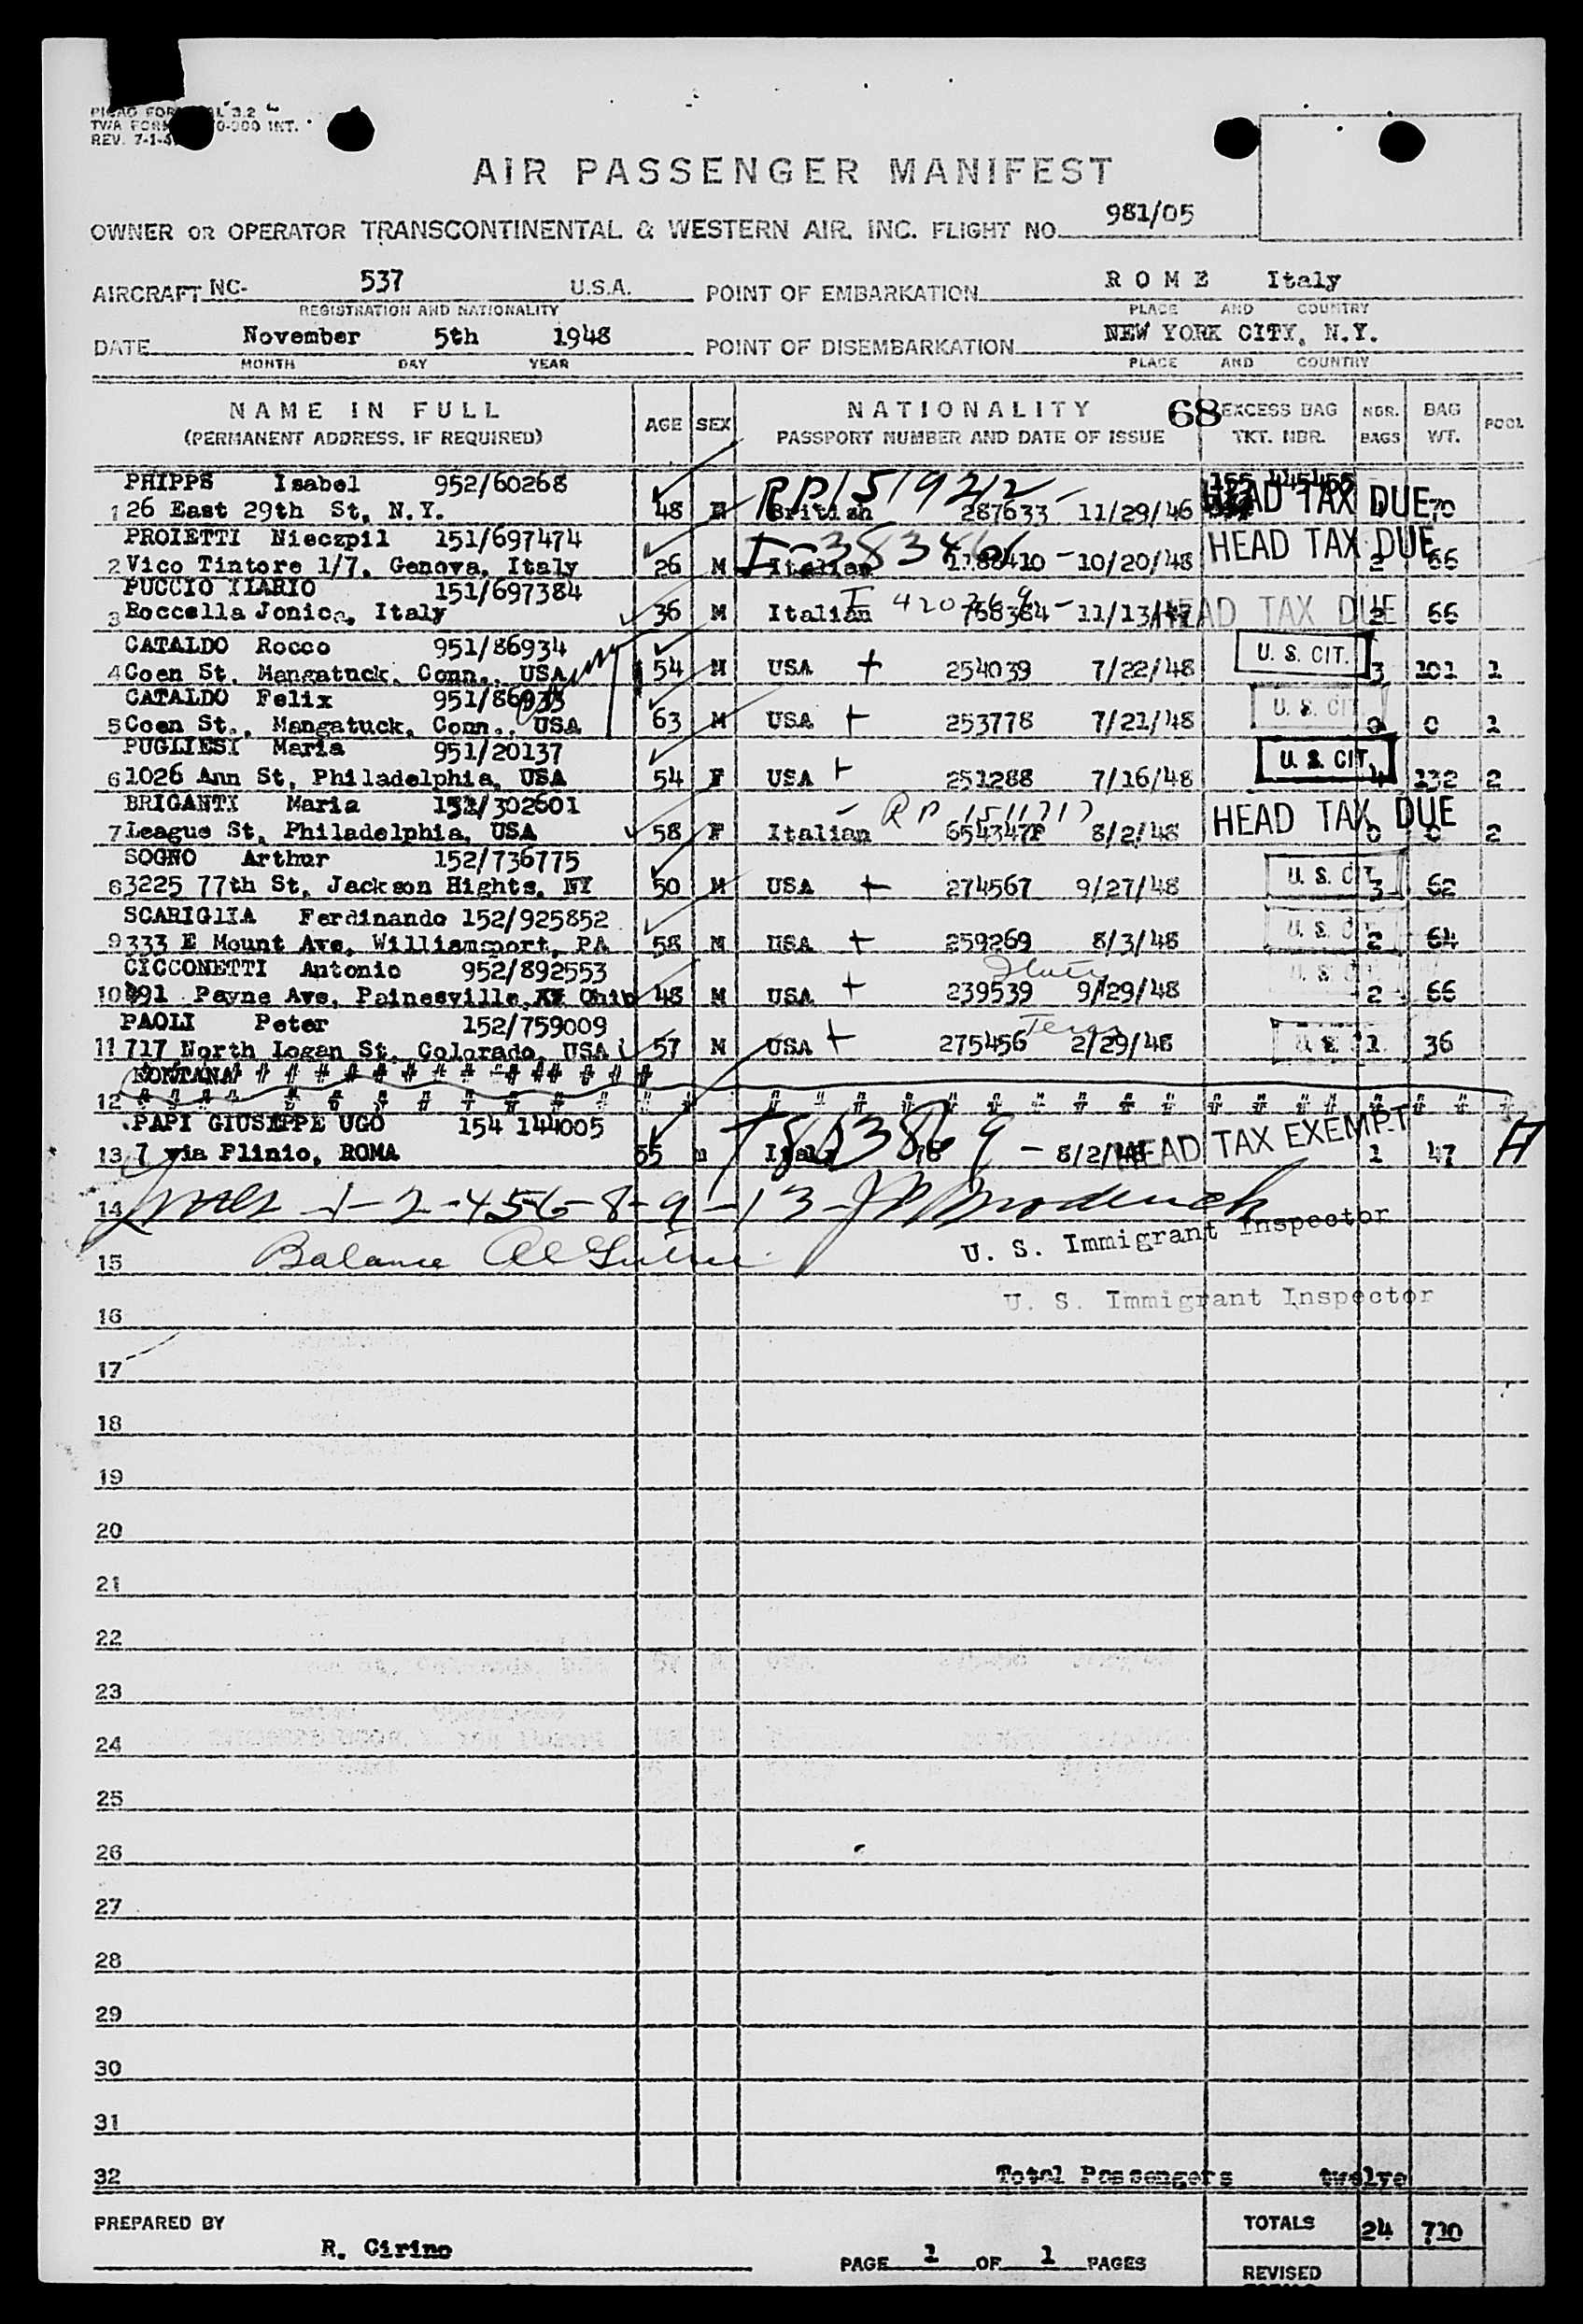 REV. 7-1-4
AIR PASSENGER MANIFEST
OWNER OR OPERATOR TRANSCONTINENTAL & WESTERN AIR, INC. FLIGHT NO. 981/05
AIRCRAFT NC- 537 U.S.A. POINT OF EMBARKATION ROME Italy
REGISTRATION AND NATIONALITY PLACE AND COUNTRY
DATE November 5th 1948 POINT OF DISEMBARKATION NEW YORK CITY, N.Y.
MONTH DAY YEAR PLACE AND COUNTRY
NAME IN FULL AGE SEX NATIONALITY 68 EXCESS BAG NBR. BAG POOL
(PERMANENT ADDRESS, IF REQUIRED) PASSPORT NUMBER AND DATE OF ISSUE TKT. NBR. BAGS WT.
PHIPPS Isabel 952/60268 RP1519212 HEAD TAX DUE
1 26 East 29th St, N.Y. 48 British 287633 - 11/29/46 70
PROIETTI Nieczpil 151/697474 HEAD TAX DUE
2 Vico Tintore 1/7, Genova, Italy 26 M Italian 10/20/48 2 66
PUCCIO ILARIO 151/697384
3 Roccella Jonica, Italy 36 M Italian 768384 - 11/13/47 HEAD TAX DUE 2 66
CATALDO Rocco 951/86934 U. S. CIT.
4 Coen St, Mangatuck, Conn., USA 54 M USA + 254039 7/22/48 3 101 1
CATALDO Felix 951/86933 U. S. CIT.
5 Coen St., Mangatuck, Conn., USA 63 M USA + 253778 7/21/48 0 0 1
PUGLIESI Maria 951/20137 U. S. CIT.
6 1026 Ann St, Philadelphia, USA 54 F USA + 251288 7/16/48 4 132 2
BRIGANTI Maria 151/302601 - RP 1511717 HEAD TAX DUE
7 League St, Philadelphia, USA 58 F Italian 654347P 8/2/48 0 0 2
SOGNO Arthur 152/736775 U. S. CIT.
8 3225 77th St, Jackson Hights, NY 50 M USA + 274567 9/27/48 3 62
SCARIGLIA Ferdinando 152/925852
9 333 E Mount Ave, Williamsport, PA 58 M USA + 259269 8/3/48 2 64
CICCONETTI Antonio 952/892553
10 991 Payne Ave, Painesville, Ohio 48 M USA + 239539 9/29/48 2 66
PAOLI Peter 152/759009
11 717 North Logan St, Colorado, USA 57 M USA + 275456 2/29/48 1 36
FONTANA # # # # # # # # # # # # # #
12 # # # # # # # # # # # # # # # # # # # # # # # # # # #
PAPI GIUSEPPE UGO 154 144005
13 7 via Plinio, ROMA 55 m - 8/2/48 HEAD TAX EXEMPT 1 47 H
14 1-2-4-5-6-8-9-13
U. S. Immigrant Inspector
15 Balance
U. S. Immigrant Inspector
16
17
18
19
20
21
22
23
24
25
26
27
28
29
30
31
32 Total Passengers twelve
PREPARED BY R. Cirino TOTALS 24 710
PAGE 1 OF 1 PAGES
REVISED